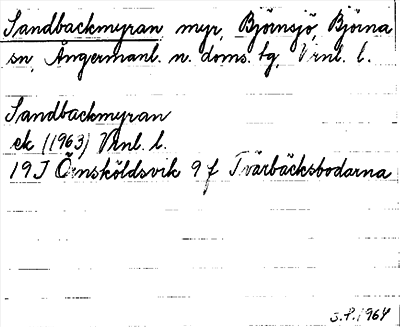 Sandbackmyran myr, Björnsjö, Björna
sn, Ångermanl. n. doms. tg, Vrnl. l.
Sandbackmyran
ek (1963) Vrnl. l.
19J Örnsköldsvik 9f Tvärbäcksbodarna
S.P. 1964